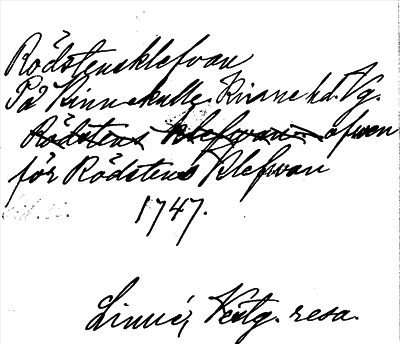 Rödstensklefvan
På Kinnekulle. Kinnehd. Vg.
Rödstens Klefvan ofwen
för Rödstens Klefvan
1747.
Linné, Vestg. resa.